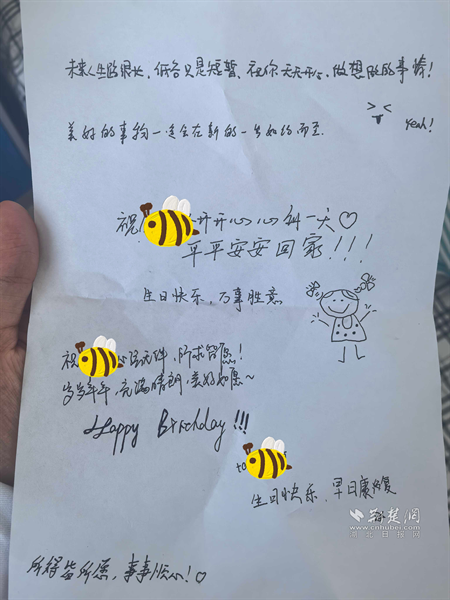 未来人生路很长,低谷只是短暂,祝你天天开心,做想做的事情!
Yeah!
美好的事物一定会在新的一岁如约而至.
祝 开开心心每一天♡
平平安安回家!!!
生日快乐,万事胜意
祝 所求皆愿!
岁岁年年,充满晴朗,美好如愿~
Happy Birthday!!!
to
生日快乐,早日康复
荆楚网
www.cnhubei.com
湖北日报网
所得皆所愿,事事顺心!♡